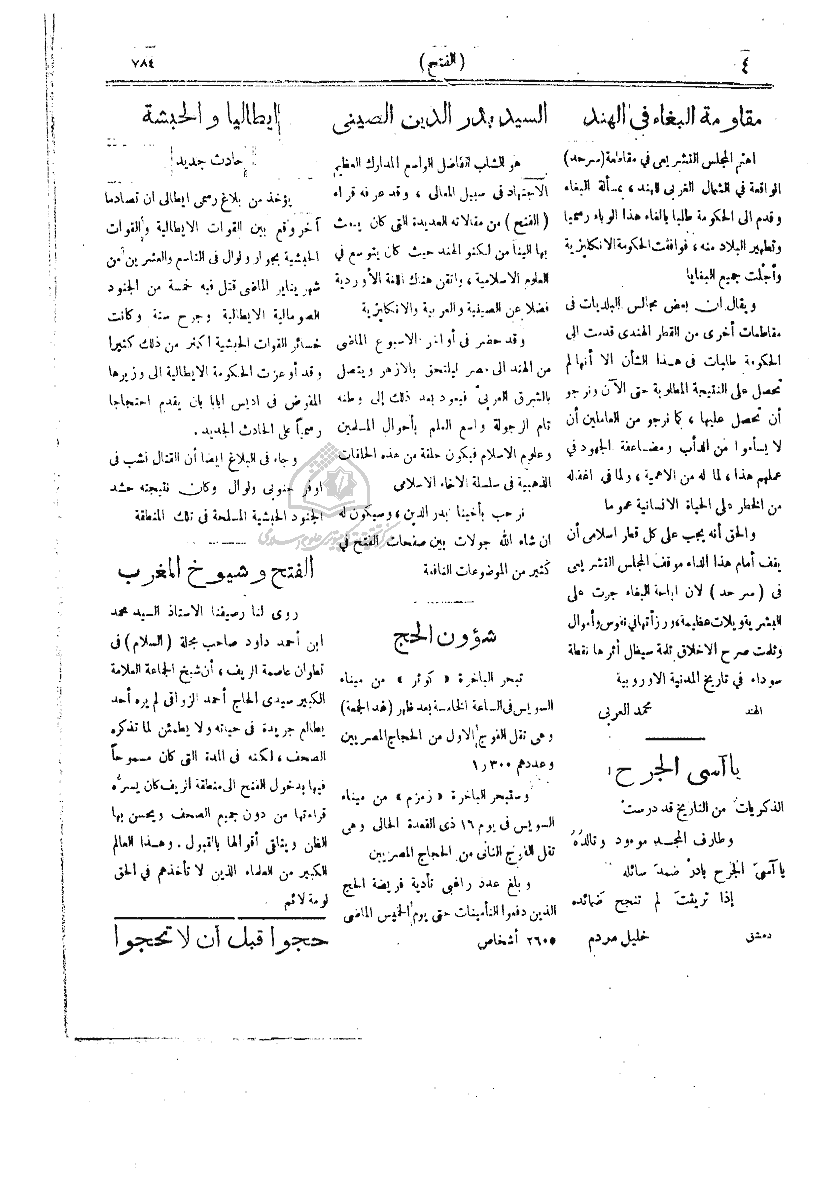 ٤
(الفتح)
٧٨٤
مقاومة البغاء في الهند
اهتم المجلس التشريعى في مقاطعة (سرحد)
الواقعة في الشمال الغربى للهند ، بمسألة البغاء
وقدم الى الحكومة طلبا بالغاء هذا الوباء رسميا
وتطهير البلاد منه ، فوافقت الحكومة الانكليزية
وأجلت جميع البغايا
ويقال ان بعض مجالس البلديات فى
مقاطعات أخرى من القطر الهندى قدمت الى
الحكومة طلبات فى هذا الشأن الا أنها لم
تحصل على النتيجة المطلوبة حتى الآن ونرجو
أن تحصل عليها ، كما نرجو من العاملين أن
لا يسأموا من الدأب ومضاعفة الجهود في
عملهم هذا ، لما له من الاهمية ، ولما في اغفاله
من الخطر على الحياة الانسانية عموما
والحق أنه يجب على كل قطر اسلامى أن
يقف أمام هذا الداء موقف المجلس التشريعى
فى (سرحد) لان اباحة البغاء جرت على
البشرية ويلات عظيمة ، ورزأتها في نفوس وأموال
وثلمت صرح الاخلاق ثلمة سيظل أثرها نقطة
سوداء في تاريخ المدنية الاوروبية
الهند محمد العربى
يا آسى الجرح !
الذكريات من التاريخ قد درست
وطارف المجد موءود وتالده
يا آسى الجرح بادر ضمد سائله
إذا تريثت لم تنجح ضمائده
دمشق خليل مردم
السيد بدر الدين الصينى
هو الشاب الفاضل الواسع المدارك العظيم
الاجتهاد في سبيل المعالى ، وقد عرفه قراء
(الفتح) من مقالاته العديدة التى كان يبعث
بها الينا من لكنو الهند حيث كان يتوسع في
العلوم الاسلامية ، واتقن هناك اللغة الأوردية
فضلا عن الصينية والعربية والانكليزية
وقد حضر فى أواخر الاسبوع الماضى
من الهند الى مصر ليلتحق بالازهر ويتصل
بالشرق العربى فيعود بعد ذلك إلى وطنه
تام الرجولة واسع العلم بأحوال المسلمين
وعلوم الاسلام فيكون حلقة من هذه الحلقات
الذهبية فى سلسلة الاخاء الاسلامى
نرحب بأخينا بدر الدين ، وسيكون له
ان شاء الله جولات بين صفحات الفتح في
كثير من الموضوعات النافعة
شؤون الحج
تبحر الباخرة « كوثر » من ميناء
السويس فى الساعة الخامسة بعد ظهر (غد الجمعة)
وهى تقل الفوج الاول من الحجاج المصريين
وعددهم ١٫٣٠٠
وستبحر الباخرة « زمزم » من ميناء
السويس فى يوم ١٦ ذى القعدة الحالى وهى
تقل الفوج الثانى من الحجاج المصريين
وبلغ عدد راغبى تأدية فريضة الحج
الذين دفعوا التأمينات حتى يوم الخميس الماضى
٢٦٠٥ أشخاص
إيطاليا والحبشة
حادث جديد
يؤخذ من بلاغ رسمى ايطالى ان تصادما
آخر وقع بين القوات الايطالية والقوات
الحبشية بجوار ولوال فى التاسع والعشرين من
شهر يناير الماضى قتل فيه خمسة من الجنود
الصومالية الايطالية وجرح ستة وكانت
خسائر القوات الحبشية أكثر من ذلك كثيرا
وقد أوعزت الحكومة الايطالية الى وزيرها
المفوض فى اديس ابابا بان يقدم احتجاجا
رسمياً على الحادث الجديد .
وجاء فى البلاغ ايضا أن القتال نشب فى
اوفر جنوبى ولوال وكان نتيجته حشد
الجنود الحبشية المسلحة فى تلك المنطقة
الفتح وشيوخ المغرب
روى لنا رصيفنا الاستاذ السيد محمد
ابن أحمد داود صاحب مجلة (السلام) فى
تطوان عاصمة الريف ، أن شيخ الجماعة العلامة
الكبير سيدى الحاج أحمد الزواقى لم يره أحد
يطالع جريدة فى حياته ولا يطمئن لما تذكره
الصحف ، لكنه فى المدة التى كان مسموحاً
فيها بدخول الفتح الى منطقة الريف كان يسره
قراءتها من دون جميع الصحف ويحسن بها
الظن ويتلقى أقوالها بالقبول . وهذا العالم
الكبير من العلماء الذين لا تأخذهم في الحق
لومة لائم
حجوا قبل أن لا تحجوا